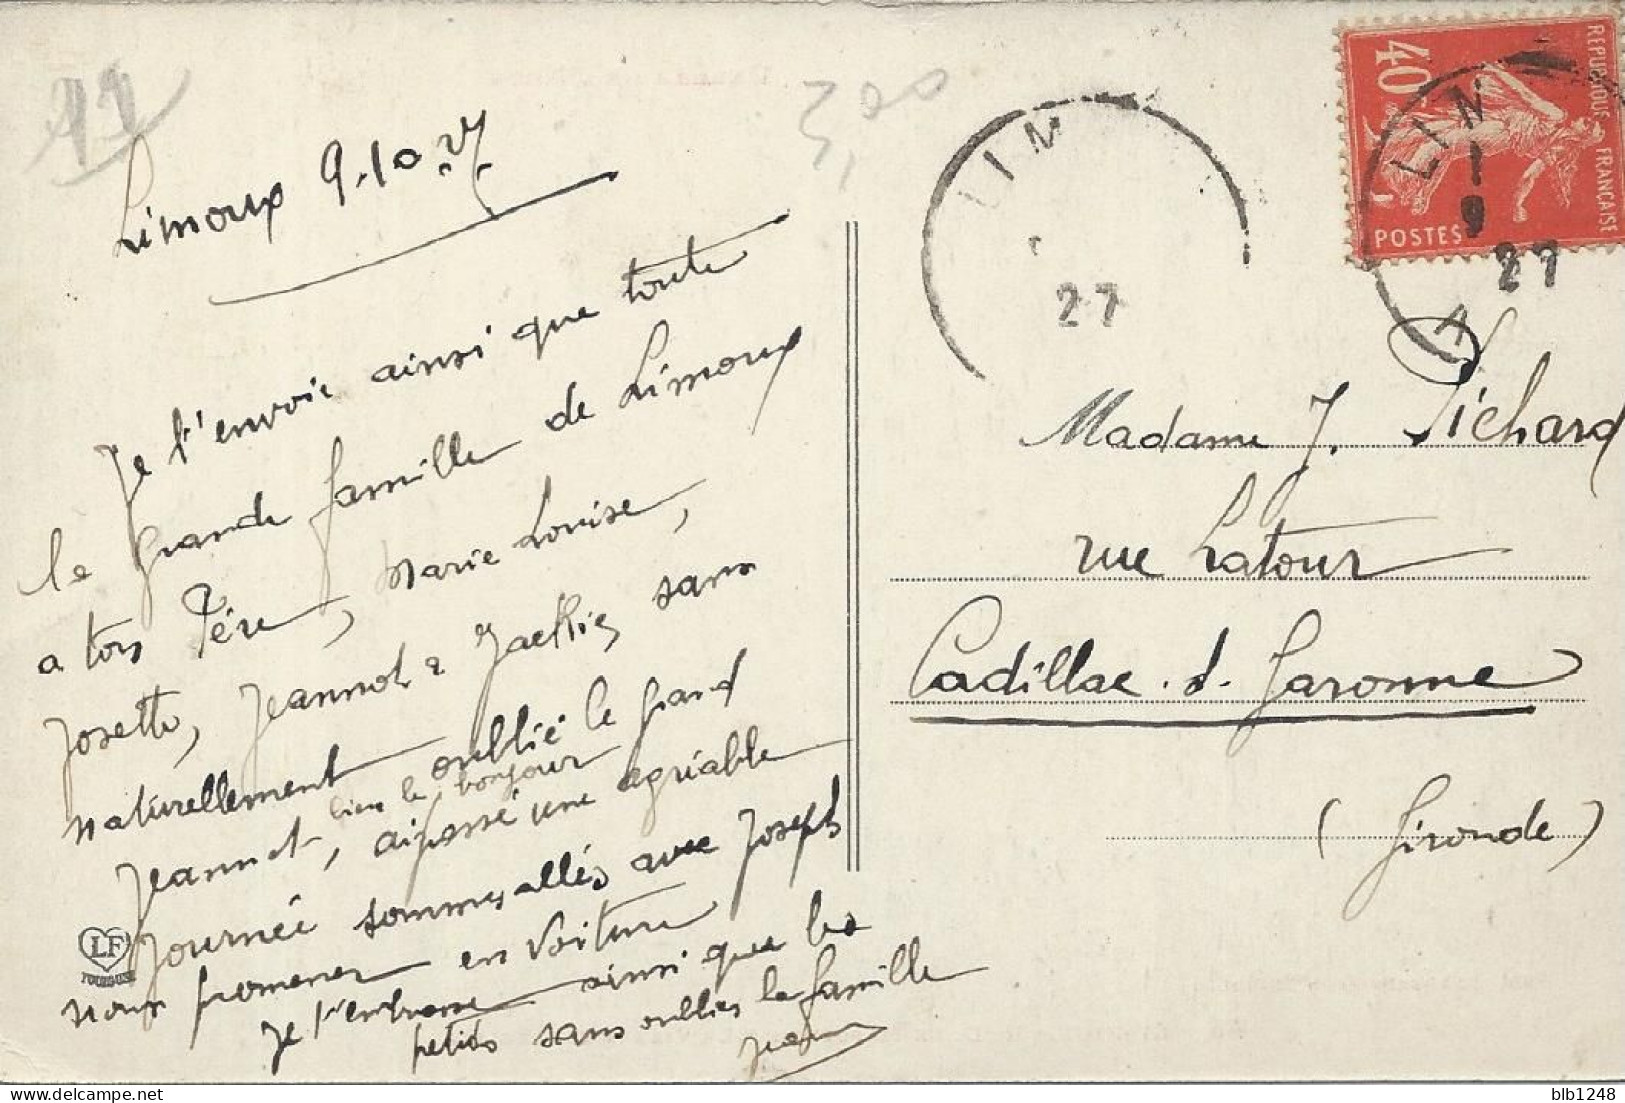 11
3,00
Limoux 9.10.27
Je t'envoie ainsi que toute
la grande famille de Limoux
a ton Père, Marie Louise,
Josette, Jeannot & Jackie, sans
naturellement oublié le grand
Jeannot, bien le bonjour
ai passé une agréable
Journée sommes allés avec Joseph
nous promener en voiture
Je t'embrasse ainsi que les
petits sans oublier la famille
Jean
LF
TOULOUSE
LIM
27
REPUBLIQUE FRANÇAISE
40
POSTES
LIM
9
27
A
Madame J. Pichard
rue Latour
Cadillac s. Garonne
(Gironde)
blb1248